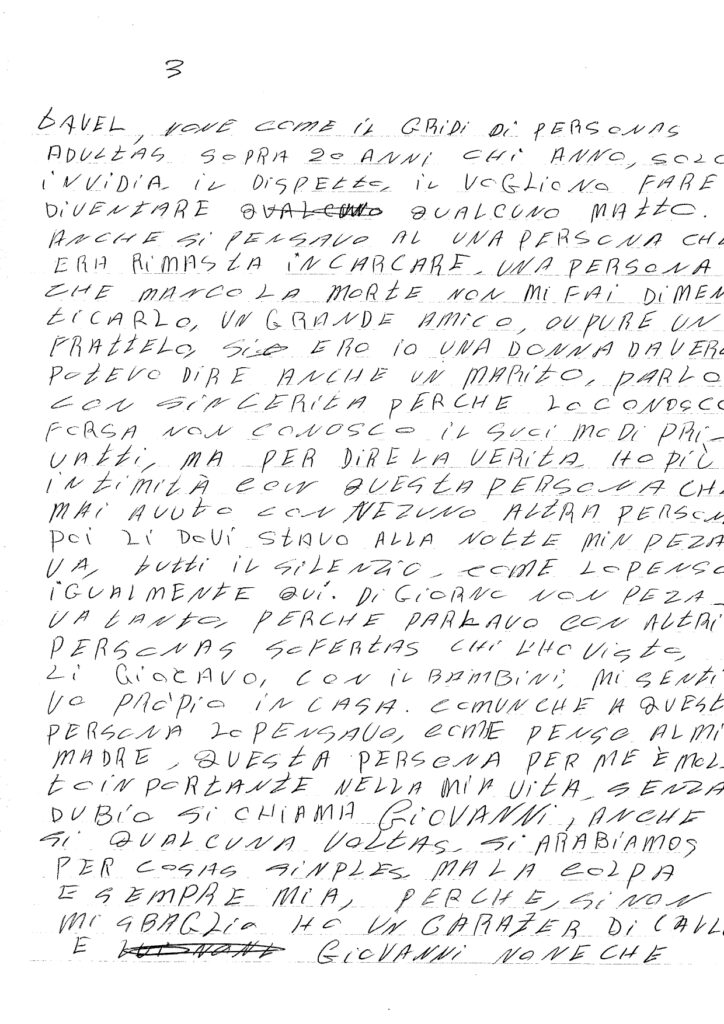 3
BAVEL, NONE COME IL GRIDI DI PERSONAS
ADULTAS SOPRA 20 ANNI CHI ANNO, SOLO
INVIDIA. IL DISPETTO, IL VOGLIONO FARE
DIVENTARE QUALCUNO QUALCUNO MATTO.
ANCHE SI PENSAVO AL UNA PERSONA CH
ERA RIMASTA INCARCARE. UNA PERSONA
CHE MANCO LA MORTE NON MI FAI DIMEN
TICARLO, UN GRANDE AMICO, OUPURE UN
FRATTELO, SI ERO IO UNA DONNA DAVERO
POTEVO DIRE ANCHE UN MARITO, PARLO
CON SINCERITA PERCHE LO CONOSCO
FORSA NON CONOSCO IL SUCI MODI PRI-
VATTI, MA PER DIRE LA VERITA HO PIÙ
INTIMITÀ CON QUESTA PERSONA CH
MAI AVUTO CON NEZUNO ALTRA PERSON
POI LI DOVI STAVO ALLA NOTTE MIN PEZA
VA, TUTTI IL SILENZIO, COME LO PENSO
IGUALMENTE QUI. DI GIORNO NON PEZA-
VA TANTO, PERCHE PARLAVO CON ALTRI
PERSONAS SOFERTAS CHI L'HO VISTO,
LI GIOCAVO, CON IL BAMBINI, MI SENTI
VO PRÒPIO IN CASA. COMUNCHE A QUEST
PERSONA LO PENSAVO, COME PENSO AL MI
MADRE, QUESTA PERSONA PER ME È MOL
TO INPORTANTE NELLA MIA VITA, SENZA
DUBIO SI CHIAMA GIOVANNI, ANCHE
SI QUALCUNA VOLTAS, SI ARABIAMOS
PER COSAS SINPLES, MA LA COLPA
E SEMPRE MIA, PERCHE, SI NON
MI SBAGLIO HO UN CARAZER DI CAVL
E GIOVANNI NONE CHE